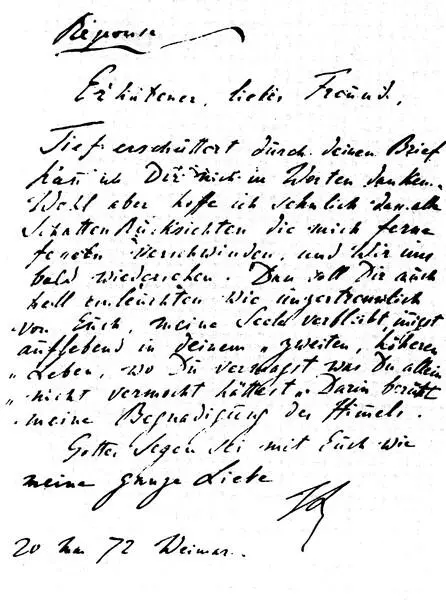 Réponse
Erhabener, lieber Freund,
Tief erschüttert durch deinen Brief
kan ich Dir nicht in Worten danken.
Wohl aber hoffe ich sehnlich das alle
Schatten Rücksichten die mich ferne
verschwinden, und Wir uns
bald wiedersehen. Dan soll Dir auch
hell einleuchten wie ungertrennlich
von Euch, meine Seele verbliebt
auflebend in deinem „zweiten, höheren
„Leben, wo Du vermagst was Du allein
„nicht vermocht hättest„. Darin beruht
meine Begnadigung des Himels.
Gottes Segen sei mit Euch wie
meine ganze Liebe
20 Mai 72 Weimar.